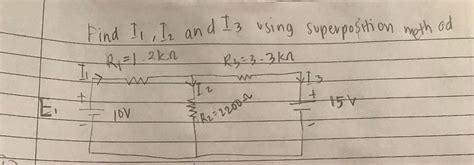 Find I1, I2 and I3 using superposition method
R1=1.2kΩ R3=3.3kΩ
I1 I2 I3
+ +
E1 10V R2=2200Ω 15V
- -